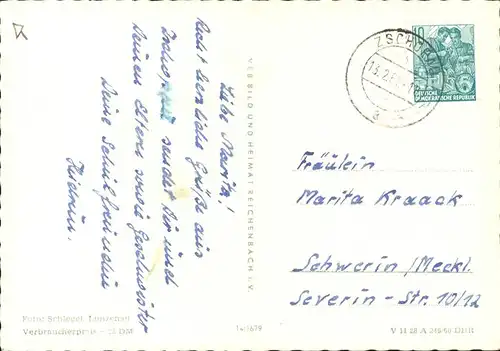 Liebe Marita!
Recht herzliche Grüße aus
Zschopau sendet Dir und
Deinen Eltern sowie Geschwister
Deine Schulfreundin
Heidrun.
VEB BILD UND HEIMAT REICHENBACH I. V.
ZSCHOPAU
13.2.6
a
10
DEUTSCHE
DEMOKRATISCHE REPUBLIK
Fräulein
Marita Kraack
Schwerin /Meckl.
Severin-Str. 10/12
Foto: Schlegel,
Verbraucherpreis DM
V 11 28 A DDR